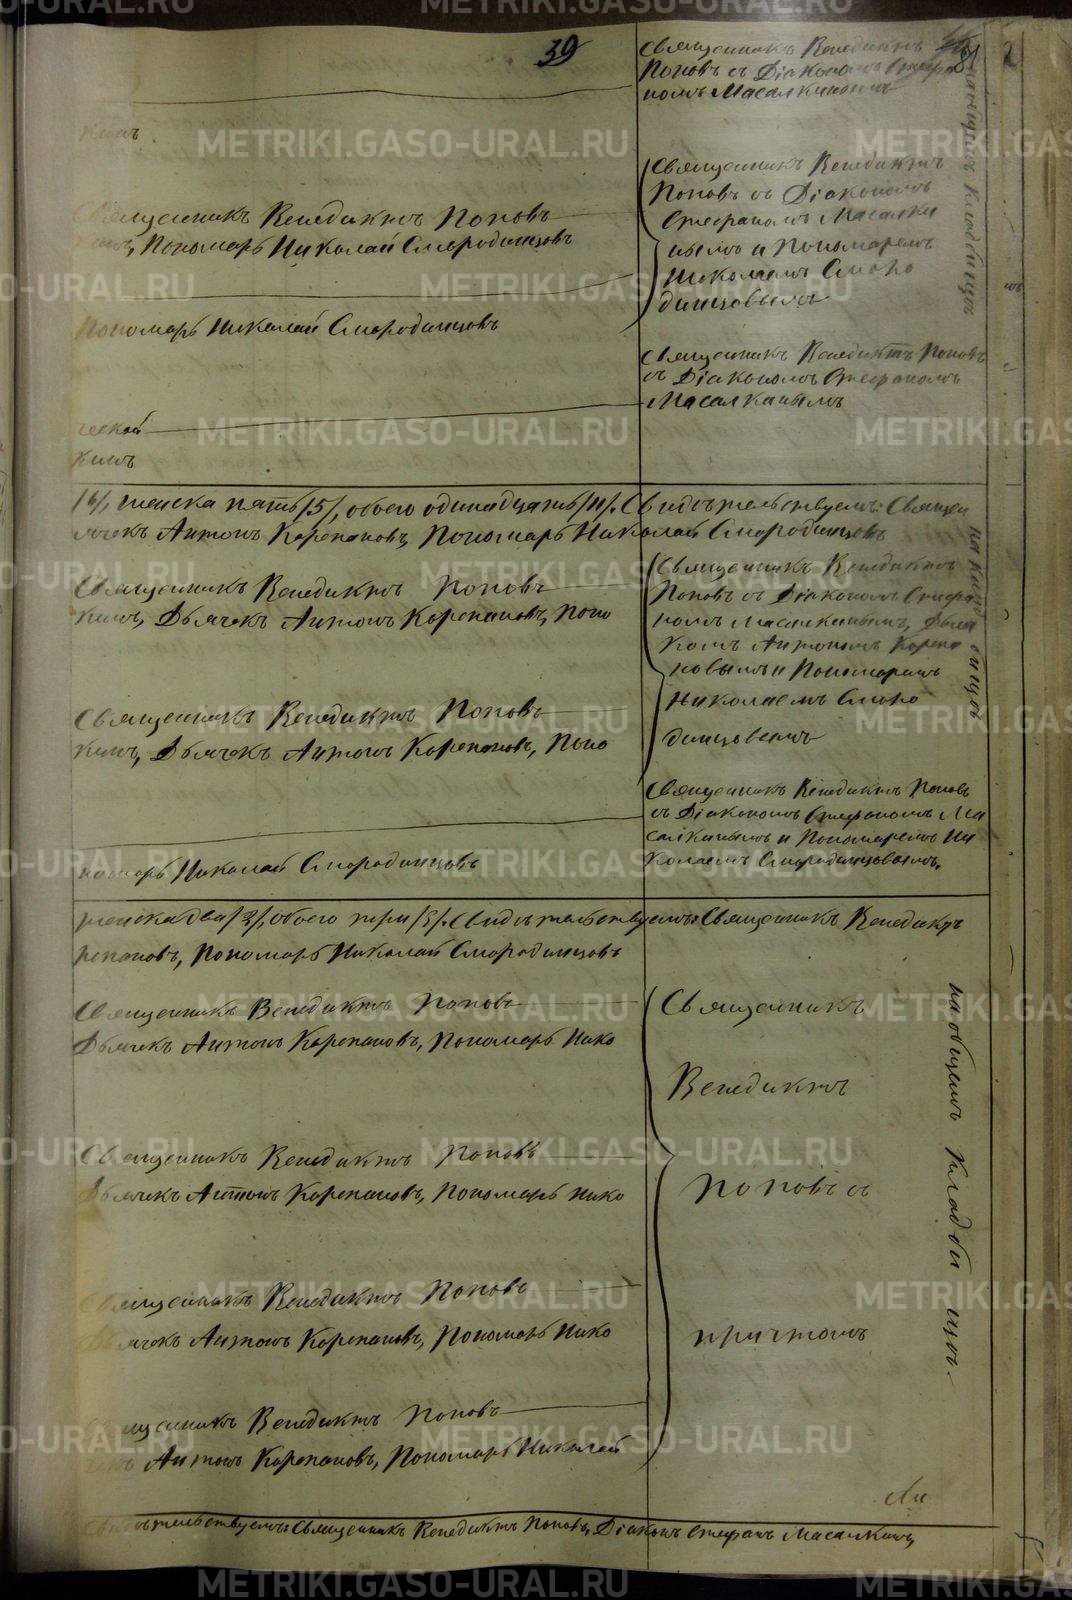 39
Священникъ Венедиктъ
Поповъ съ Діакономъ Стефа
номъ Масалкинымъ
кинъ
Священникъ Венедиктъ Поповъ
Пономарь Николай Смородинцовъ
Священникъ Венедиктъ
Поповъ съ Діакономъ
Стефаномъ Масалки
нымъ и Пономаремъ
Николаемъ Сморо
динцовымъ
Пономарь Николай Смородинцовъ
Священникъ Венедиктъ Поповъ
съ Діакономъ Стефаномъ
Масалкинымъ
кинъ
/6/, женска пять /5/, обоего одинадцать /11/. Свидѣтельствуемъ: Священ
Дьячекъ Антонъ Корепановъ, Пономарь Николай Смородинцовъ
Священникъ Венедиктъ Поповъ
кинъ, Дьячекъ Антонъ Корепановъ, Поно
Священникъ Венедиктъ
Поповъ съ Діакономъ Стефа
номъ Масалкинымъ, Дьяч
комъ Антономъ Корепа
новымъ и Пономаремъ
Николаемъ Сморо
динцовымъ
Священникъ Венедиктъ Поповъ
кинъ, Дьячекъ Антонъ Корепановъ, Поно
Священникъ Венедиктъ Поповъ
съ Діакономъ Стефаномъ Ма
салкинымъ и Пономаремъ Ни
колаемъ Смородинцовымъ.
номарь Николай Смородинцовъ
женска два /2/, обоего три /3/. Свидѣтельствуемъ: Священникъ Венедиктъ
репановъ, Пономарь Николай Смородинцовъ
Священникъ Венедиктъ Поповъ
Дьячекъ Антонъ Корепановъ, Пономарь Нико
Священникъ
Венедиктъ
Поповъ съ
причтомъ
на общемъ кладбищѣ.
Священникъ Венедиктъ Поповъ
Дьячекъ Антонъ Корепановъ, Пономарь Нико
Священникъ Венедиктъ Поповъ
Дьячекъ Антонъ Корепановъ, Пономарь Нико
Священникъ Венедиктъ Поповъ
Антонъ Корепановъ, Пономарь Николай
Свидѣтельствуемъ: Священникъ Венедиктъ Поповъ, Діаконъ Стефанъ Масалкинъ,
METRIKI.GASO-URAL.RU